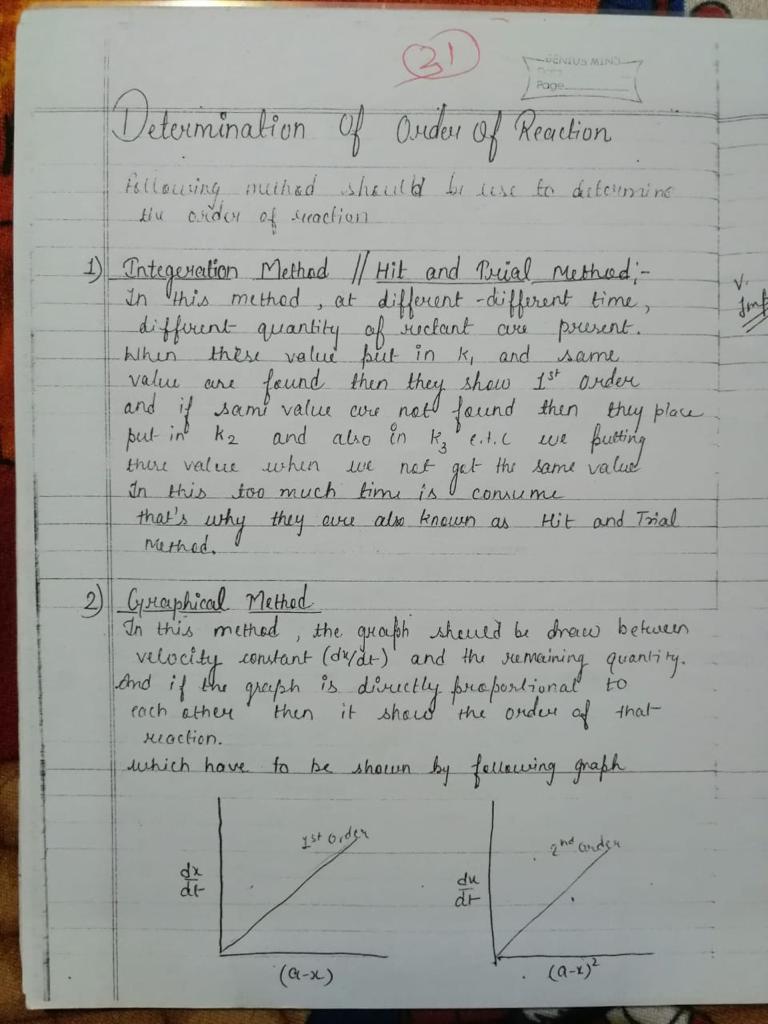 31
GENIUS MIND
Date
Page
Determination of Order of Reaction
Following method should be use to determine
the order of reaction
1) Integeration Method // Hit and Trial Method:-
In this method, at different-different time,
different quantity of rectant are present.
When these value put in k₁ and same
value are found then they show 1st order
and if same value are not found then they place
put in k₂ and also in k₃ e.t.c we putting
there value when we not get the same value
In this too much time is consume
that's why they are also known as Hit and Trial
Method.
V.
Imp
2) Graphical Method
In this method, the graph should be draw between
velocity constant (dx/dt) and the remaining quantity.
And if the graph is directly proportional to
each other then it show the order of that
reaction.
which have to be shown by following graph
1st Order
dx/dt
(a-x)
2nd order
dx/dt
(a-x)²